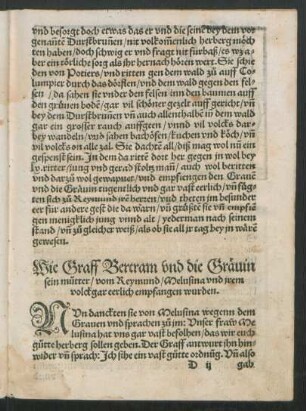 vnd besorgt doch etwas das er vnd die seinē bey dem vor
genanntē Durstbrunnen / nit volkomenlich herberg möch
ten haben / doch schwig er vnd fragt nit fürbaß / es wz a/
ber ein törlich sorg als jhr hernach hören wert. Sie schie
den von Potiers / vnd ritten gen dem wald zu auff Co/
lumpier durch das dörffen / vnd dem wald gegen dem fel
sen / da sahen sie vnder den felsen inn den baumen auff
den grünen bodē / gar vil schöner gezelt auff gericht / vñ
bey dem Durstbrunnen vñ auch allenthalbē in dem wald
gar ein grosser rauch auffgiēg / vnnd vil volcks dar/
bey wandeln / vnd sahen bachöfen / kuchen vnd köch / vñ
vil volcks on alle zal. Sie dachtē all / diß mag wol nū ein
gespenst sein. In dem da rietē dort her gegen in wol bey
ly. ritter / jung vnd gerad stoltz mañ / auch wol beritten
vnd darzū wol gewapnet / vnd empfiengen den Grauē
vnd die Gräuin tugentlich vnd gar vast eerlich / vñ füg/
ten sich zū Reymund jrē herren / vnd thetten jm besunder
eer für ander gest die da wärn / vñ grüßtē sie vñ empfiē
gen menigklich jung vnnd alt / yederman nach seinem
stand / vñ zū gleicher weiß / als ob sie all jr tag bey in wärē
gewesen.
Wie Graff Bertram vnd die Gräuin
sein mütter / vom Reymund / Melusina vnd jrem
volck gar eerlich empfangen wurden.
NVn danckten sie von Melusina wegenn dem
Grauen vnd sprachen zū jm: Vnser fraw Me
lusina hat vns gar vast befolhen / das wir euch
gütte herberg sollen geben. Der Graff antwurt jhn hin/
wider vñ sprach: Ich sihe ein vast gütte ordnūg. Vñ also
D ij gab